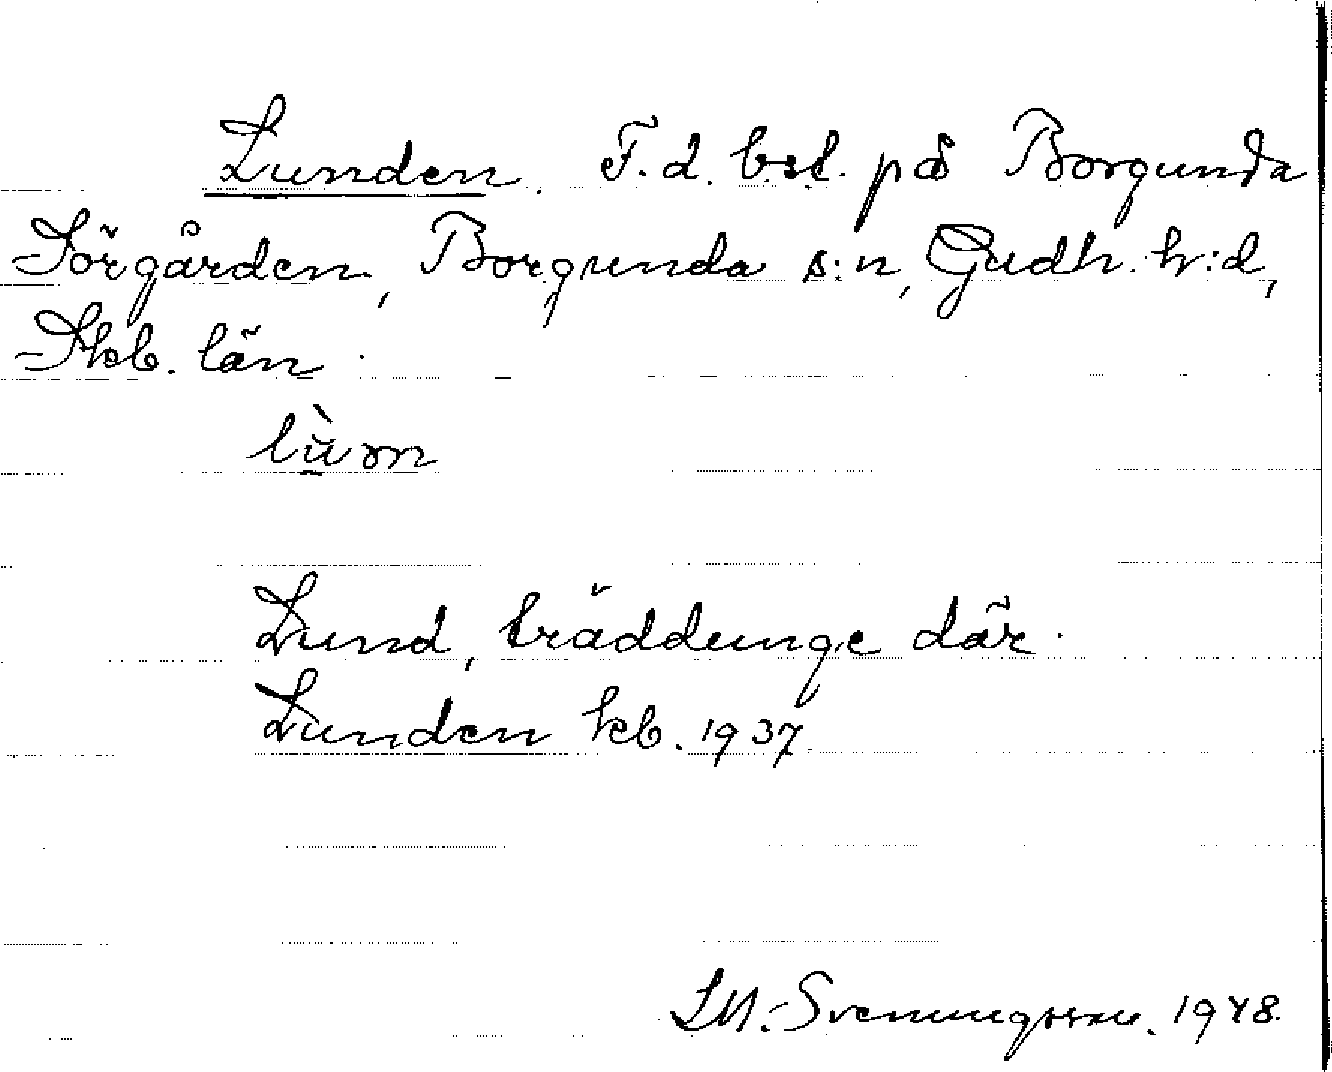 Lunden. F.d. bsl. på Borgunda
Sörgården, Borgunda s:n, Gudh. h:d,
Skb. län.
Lund, träddunge där.
Lunden kb. 1937
Svenungsson. 1948.